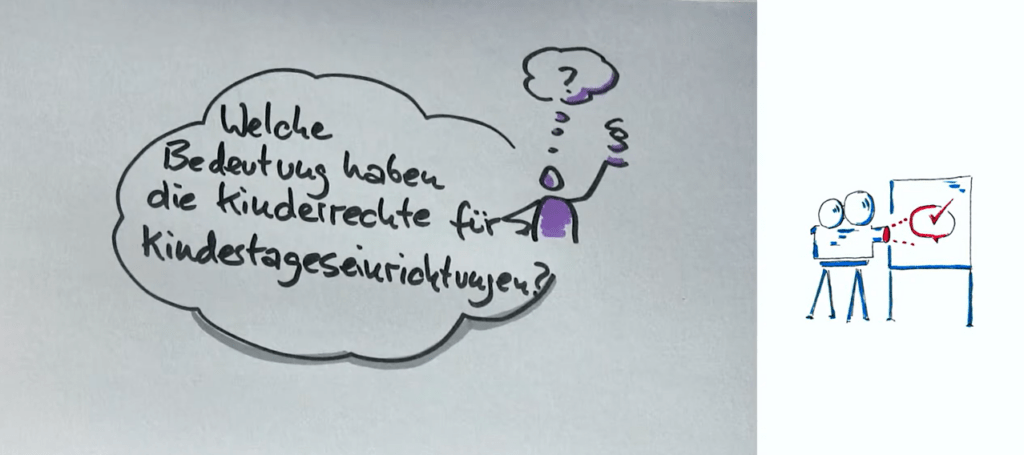 ?
§
Welche
Bedeutung haben
die Kinderrechte für
Kindestageseinrichtungen?